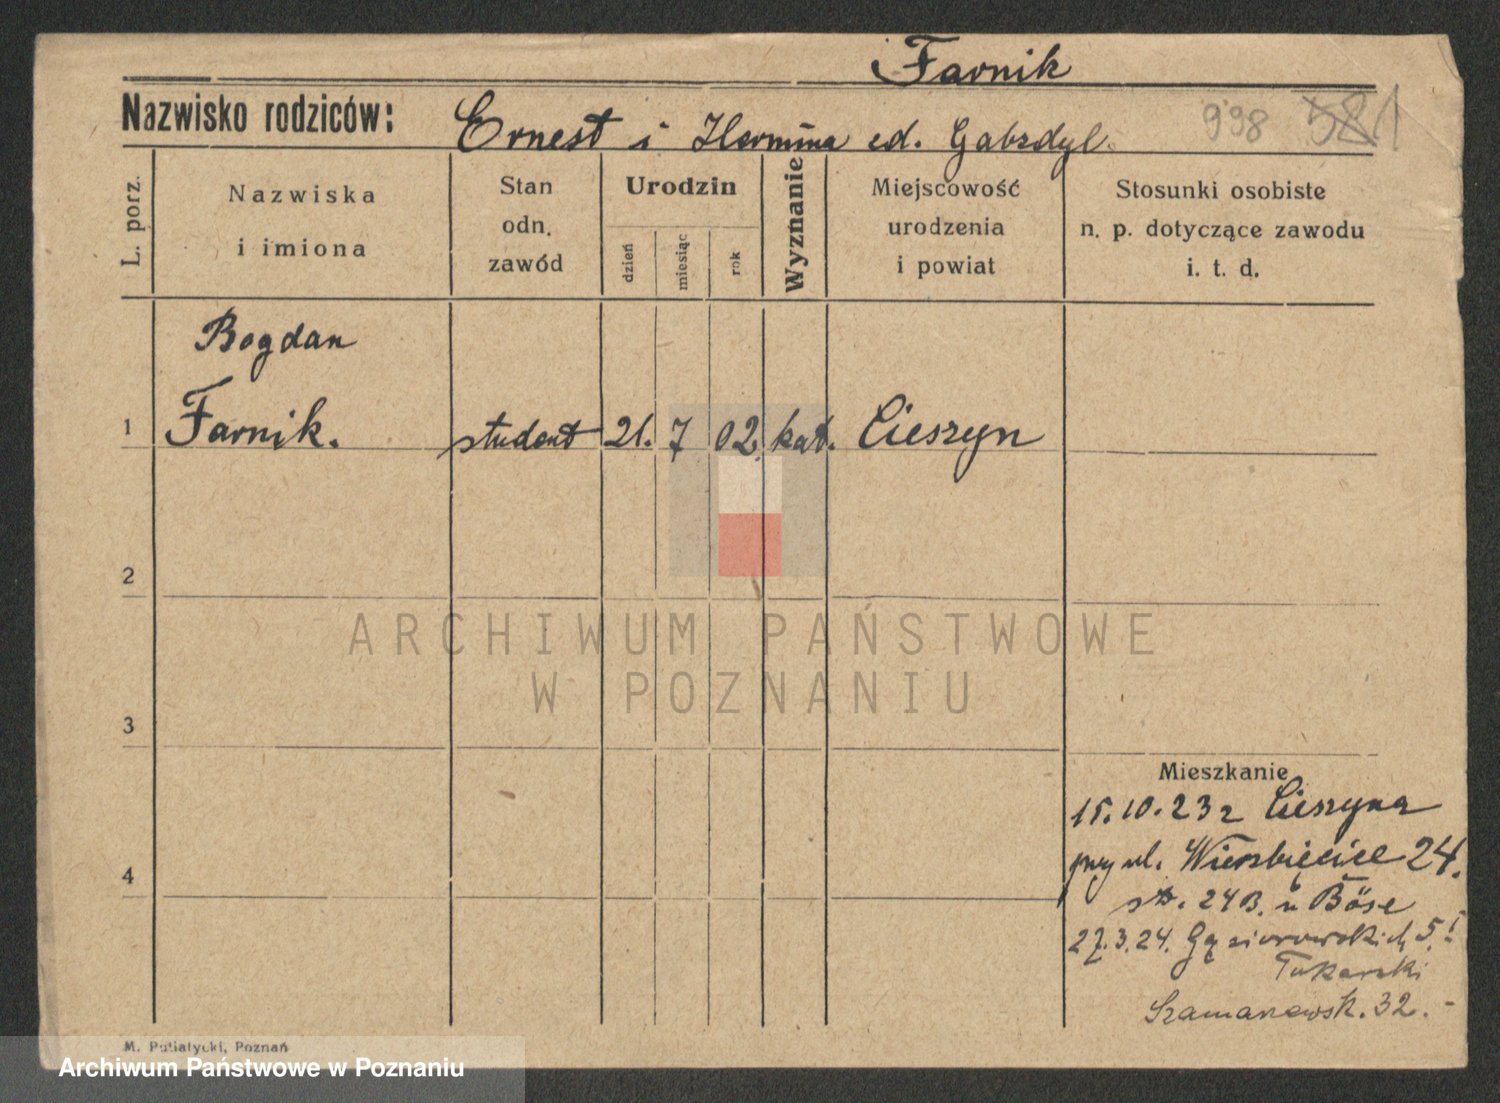 Farnik
Nazwisko rodziców: Ernest i Hermina ed. Gabzdyl. 998 581
L. porz.
Nazwiska
i imiona
Stan
odn.
zawód
Urodzin
dzień
miesiąc
rok
Wyznanie
Miejscowość
urodzenia
i powiat
Stosunki osobiste
n. p. dotyczące zawodu
i. t. d.
Bogdan
1 Farnik. student 21. 7 02. kat. Cieszyn
2
3
4
Mieszkanie
15.10.23 z Cieszyna
przy ul. Wierzbięcice 24.
24B. u Böse
27.3.24. Gąsiorowskich 5.
Tokarski
32.-
M. Putiatycki, Poznań
ARCHIWUM PAŃSTWOWE
W POZNANIU
Archiwum Państwowe w Poznaniu